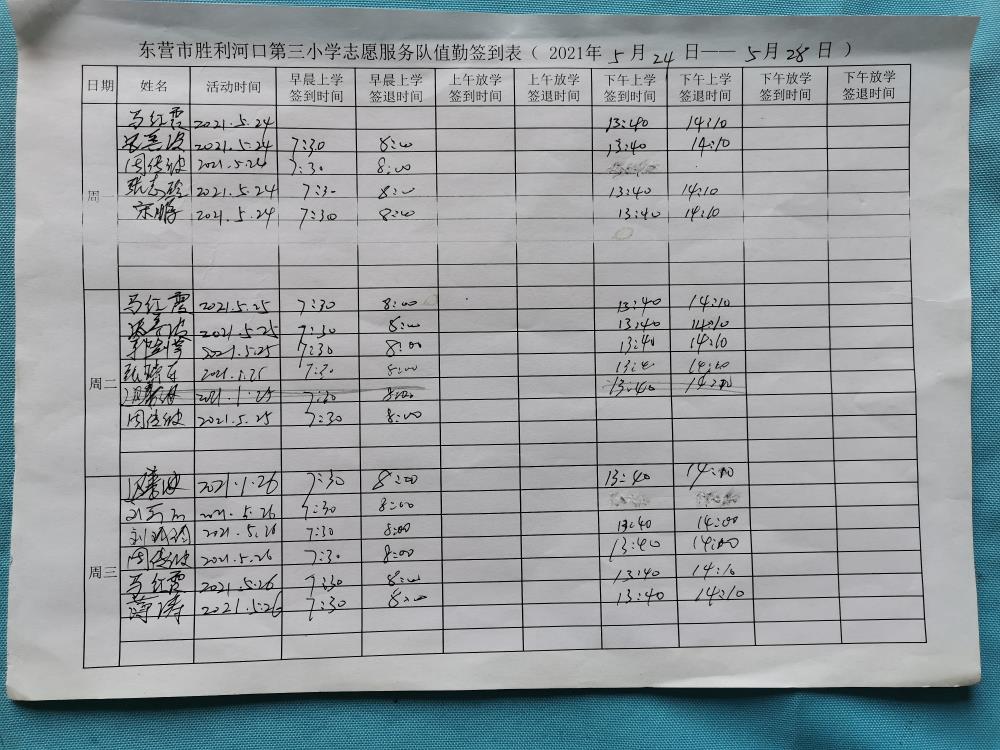 东营市胜利河口第三小学志愿服务队值勤签到表（ 2021年 5 月 24 日—— 5月 28 日 ）
日期 姓名 活动时间 早晨上学签到时间 早晨上学签退时间 上午放学签到时间 上午放学签退时间 下午上学签到时间 下午上学签退时间 下午放学签到时间 下午放学签退时间
周一
马红霞 2021.5.24 13:40 14:10
2021.5.24 7:30 8:00 13:40 14:10
周传波 2021.5.24 7:30 8:00
2021.5.24 7:30 8:00 13:40 14:10
宋鹏 2021.5.24 7:30 8:00 13:40 14:10
周二
马红霞 2021.5.25 7:30 8:00 13:40 14:10
2021.5.25 7:30 8:00 13:40 14:10
2021.5.25 7:30 8:00 13:40 14:10
2021.5.25 7:30 8:00 13:40
7:30 8:00 13:40
周传波 2021.5.25 7:30 8:00
周三
2021.1.26 7:30 8:00 13:40 14:00
2021.5.26 7:30 8:00
2021.5.26 7:30 8:00 13:40 14:00
周传波 2021.5.26 7:30 8:00 13:40 14:00
马红霞 2021.5.26 7:30 8:00 13:40 14:10
薛涛 2021.5.26 7:30 8:00 13:40 14:10